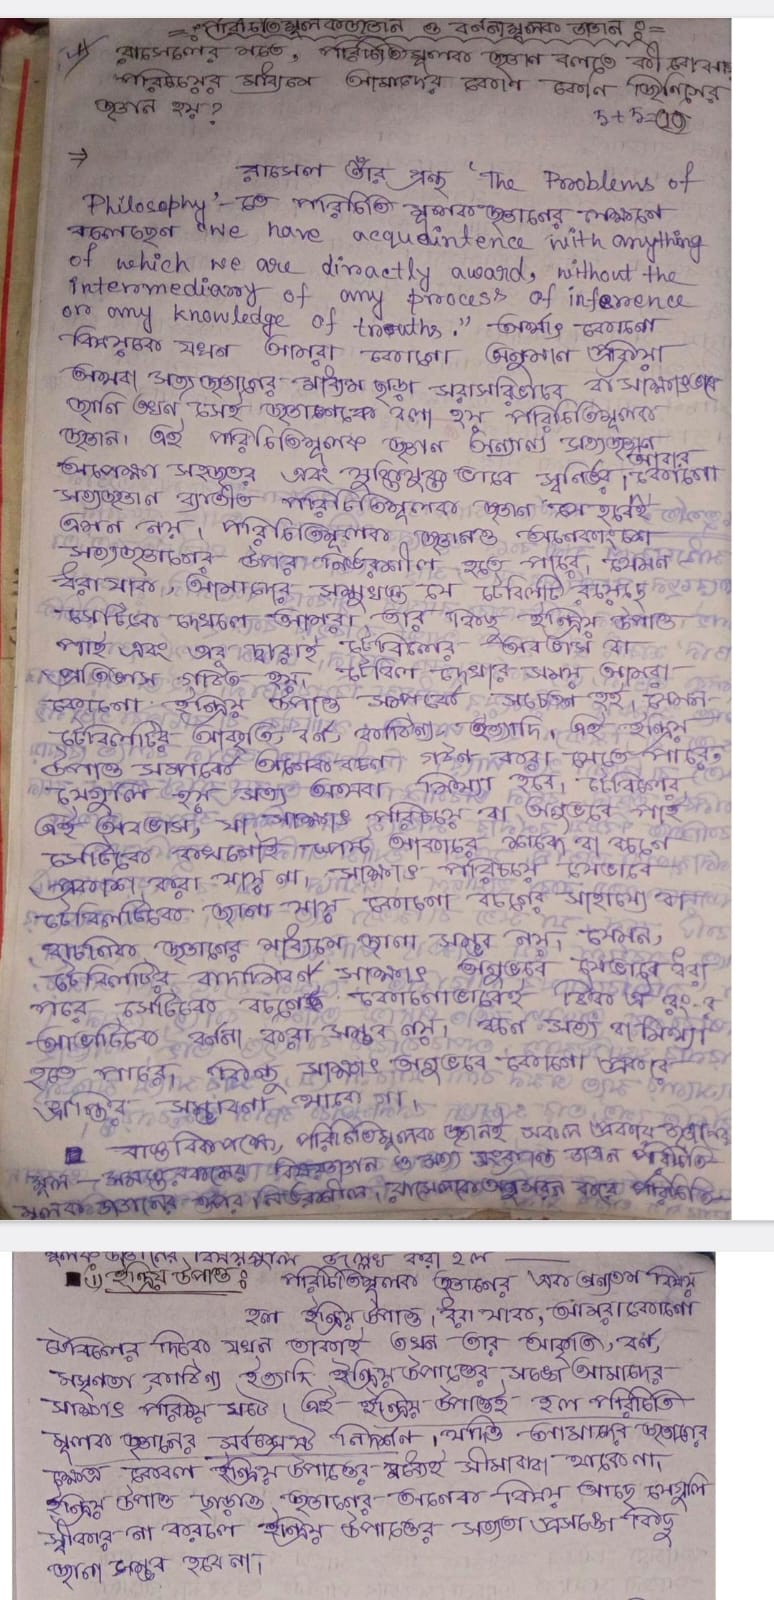 পরিচিতিমূলক জ্ঞান ও বর্ণনামূলক জ্ঞান :=
রাসেলের মতে, পরিচিতিমূলক জ্ঞান বলতে কী বোঝায়
পরিচয়ের মাধ্যমে আমাদের কোন কোন জিনিসের
জ্ঞান হয়? 5+5=10
⇒ রাসেল তাঁর গ্রন্থ 'The Problems of
Philosophy'-তে পরিচিতি মূলক জ্ঞানের লক্ষণে
বলেছেন "We have acquaintence with anything
of which we are diractly award, without the
intermediaroy of any process of inference
or any knowledge of trouths." অর্থাৎ কোনো
বিষয়কে যখন আমরা কোনো অনুমান প্রক্রিয়া
অথবা সত্য জ্ঞানের মাধ্যম ছাড়া সরাসরিভাবে বা সাক্ষাৎভাবে
জানি তখন সেই জ্ঞানকে বলা হয় পরিচিতিমূলক
জ্ঞান। এই পরিচিতিমূলক জ্ঞান অন্যান্য সত্যজ্ঞান
অপেক্ষা সহজতর এবং যুক্তিযুক্ত ভাবে স্বনির্ভর। আবার কোনো
সত্যজ্ঞান ব্যতীত পরিচিতিমূলক জ্ঞান যে হবেই
এমন নয়। পরিচিতিমূলক জ্ঞানও অনেকাংশে
সত্যজ্ঞানের উপর নির্ভরশীল হতে পারে। যেমন
ধরা যাক আমাদের সম্মুখস্থ যে টেবিলটি রয়েছে
সেটিকে দেখলে আমরা তার কিছু ইন্দ্রিয় উপাত্ত
পাই এবং তার দ্বারাই টেবিলের অবভাস বা
প্রতিভাস গঠিত হয়। টেবিল দেখার সময় আমরা
কতগুলো ইন্দ্রিয় উপাত্ত সম্পর্কে সচেতন হই। যেমন-
টেবিলটির আকৃতি বর্ণ, কাঠিণ্য ইত্যাদি। এই ইন্দ্রিয়
উপাত্ত সম্পর্কে অনেক বচন গঠন করা যেতে পারে,
যেগুলি হয় সত্য অথবা মিথ্যা হবে। টেবিলের
এই অবভাস, যা সাক্ষাৎ পরিচয়ে বা অনুভবে পাই
সেটিকে কখনোই স্পষ্ট আকারের বাক্যে বা বচনে
প্রকাশ করা যায় না। সাক্ষাৎ পরিচয়ে যেভাবে
টেবিলটিকে জানা যায় কোনো বচনের সাহায্যে বা
বাচনিক জ্ঞানের মাধ্যমে জানা সম্ভব নয়। যেমন,
টেবিলটির বাদামিবর্ণ সাক্ষাৎ অনুভবে যেভাবে ধরা
পরে সেটিকে বচনে কোনোভাবেই ঠিক ঐ রং-এর
আভাটিকে বর্ণনা করা সম্ভব নয়। বচন সত্য বা মিথ্যা
হতে পারে। কিন্তু সাক্ষাৎ অনুভবে কোনো প্রকার
ভ্রান্তির সম্ভাবনা থাকে না।
বাস্তবিকপক্ষে, পরিচিতিমূলক জ্ঞানই সকল প্রকার জ্ঞানের
মূল - সমস্তরকমের বিষয়জ্ঞান ও সত্য সংক্রান্ত জ্ঞান পরিচিতি-
মূলক জ্ঞানের ওপর নির্ভরশীল। রাসেলকে অনুসরন করে পরিচিতি-
মূলক জ্ঞানের বিষয়গুলি উল্লেখ করা হল —
(i) ইন্দ্রিয় উপাত্ত : পরিচিতিমূলক জ্ঞানের এক অন্যতম বিষয়
হল ইন্দ্রিয় উপাত্ত। ধরা যাক, আমরা কোনো
টেবিলের দিকে যখন তাকাই তখন তার আকৃতি, বর্ণ,
মসৃনতা, কাঠিণ্য ইত্যাদি ইন্দ্রিয় উপাত্তের সঙ্গে আমাদের
সাক্ষাৎ পরিচয় ঘটে। এই ইন্দ্রিয় উপাত্তই হল পরিচিতি
মূলক জ্ঞানের সর্বশ্রেষ্ট নিদর্শন। যদিও আমাদের জ্ঞানের
ক্ষেত্র কেবল ইন্দ্রিয় উপাত্তের মধ্যেই সীমাবদ্ধ থাকে না।
ইন্দ্রিয় উপাত্ত ছাড়াও জ্ঞানের অনেক বিষয় আছে যেগুলি
স্বীকার না করলে ইন্দ্রিয় উপাত্তের সত্যতা প্রসঙ্গে কিছু
জানা সম্ভব হবে না।